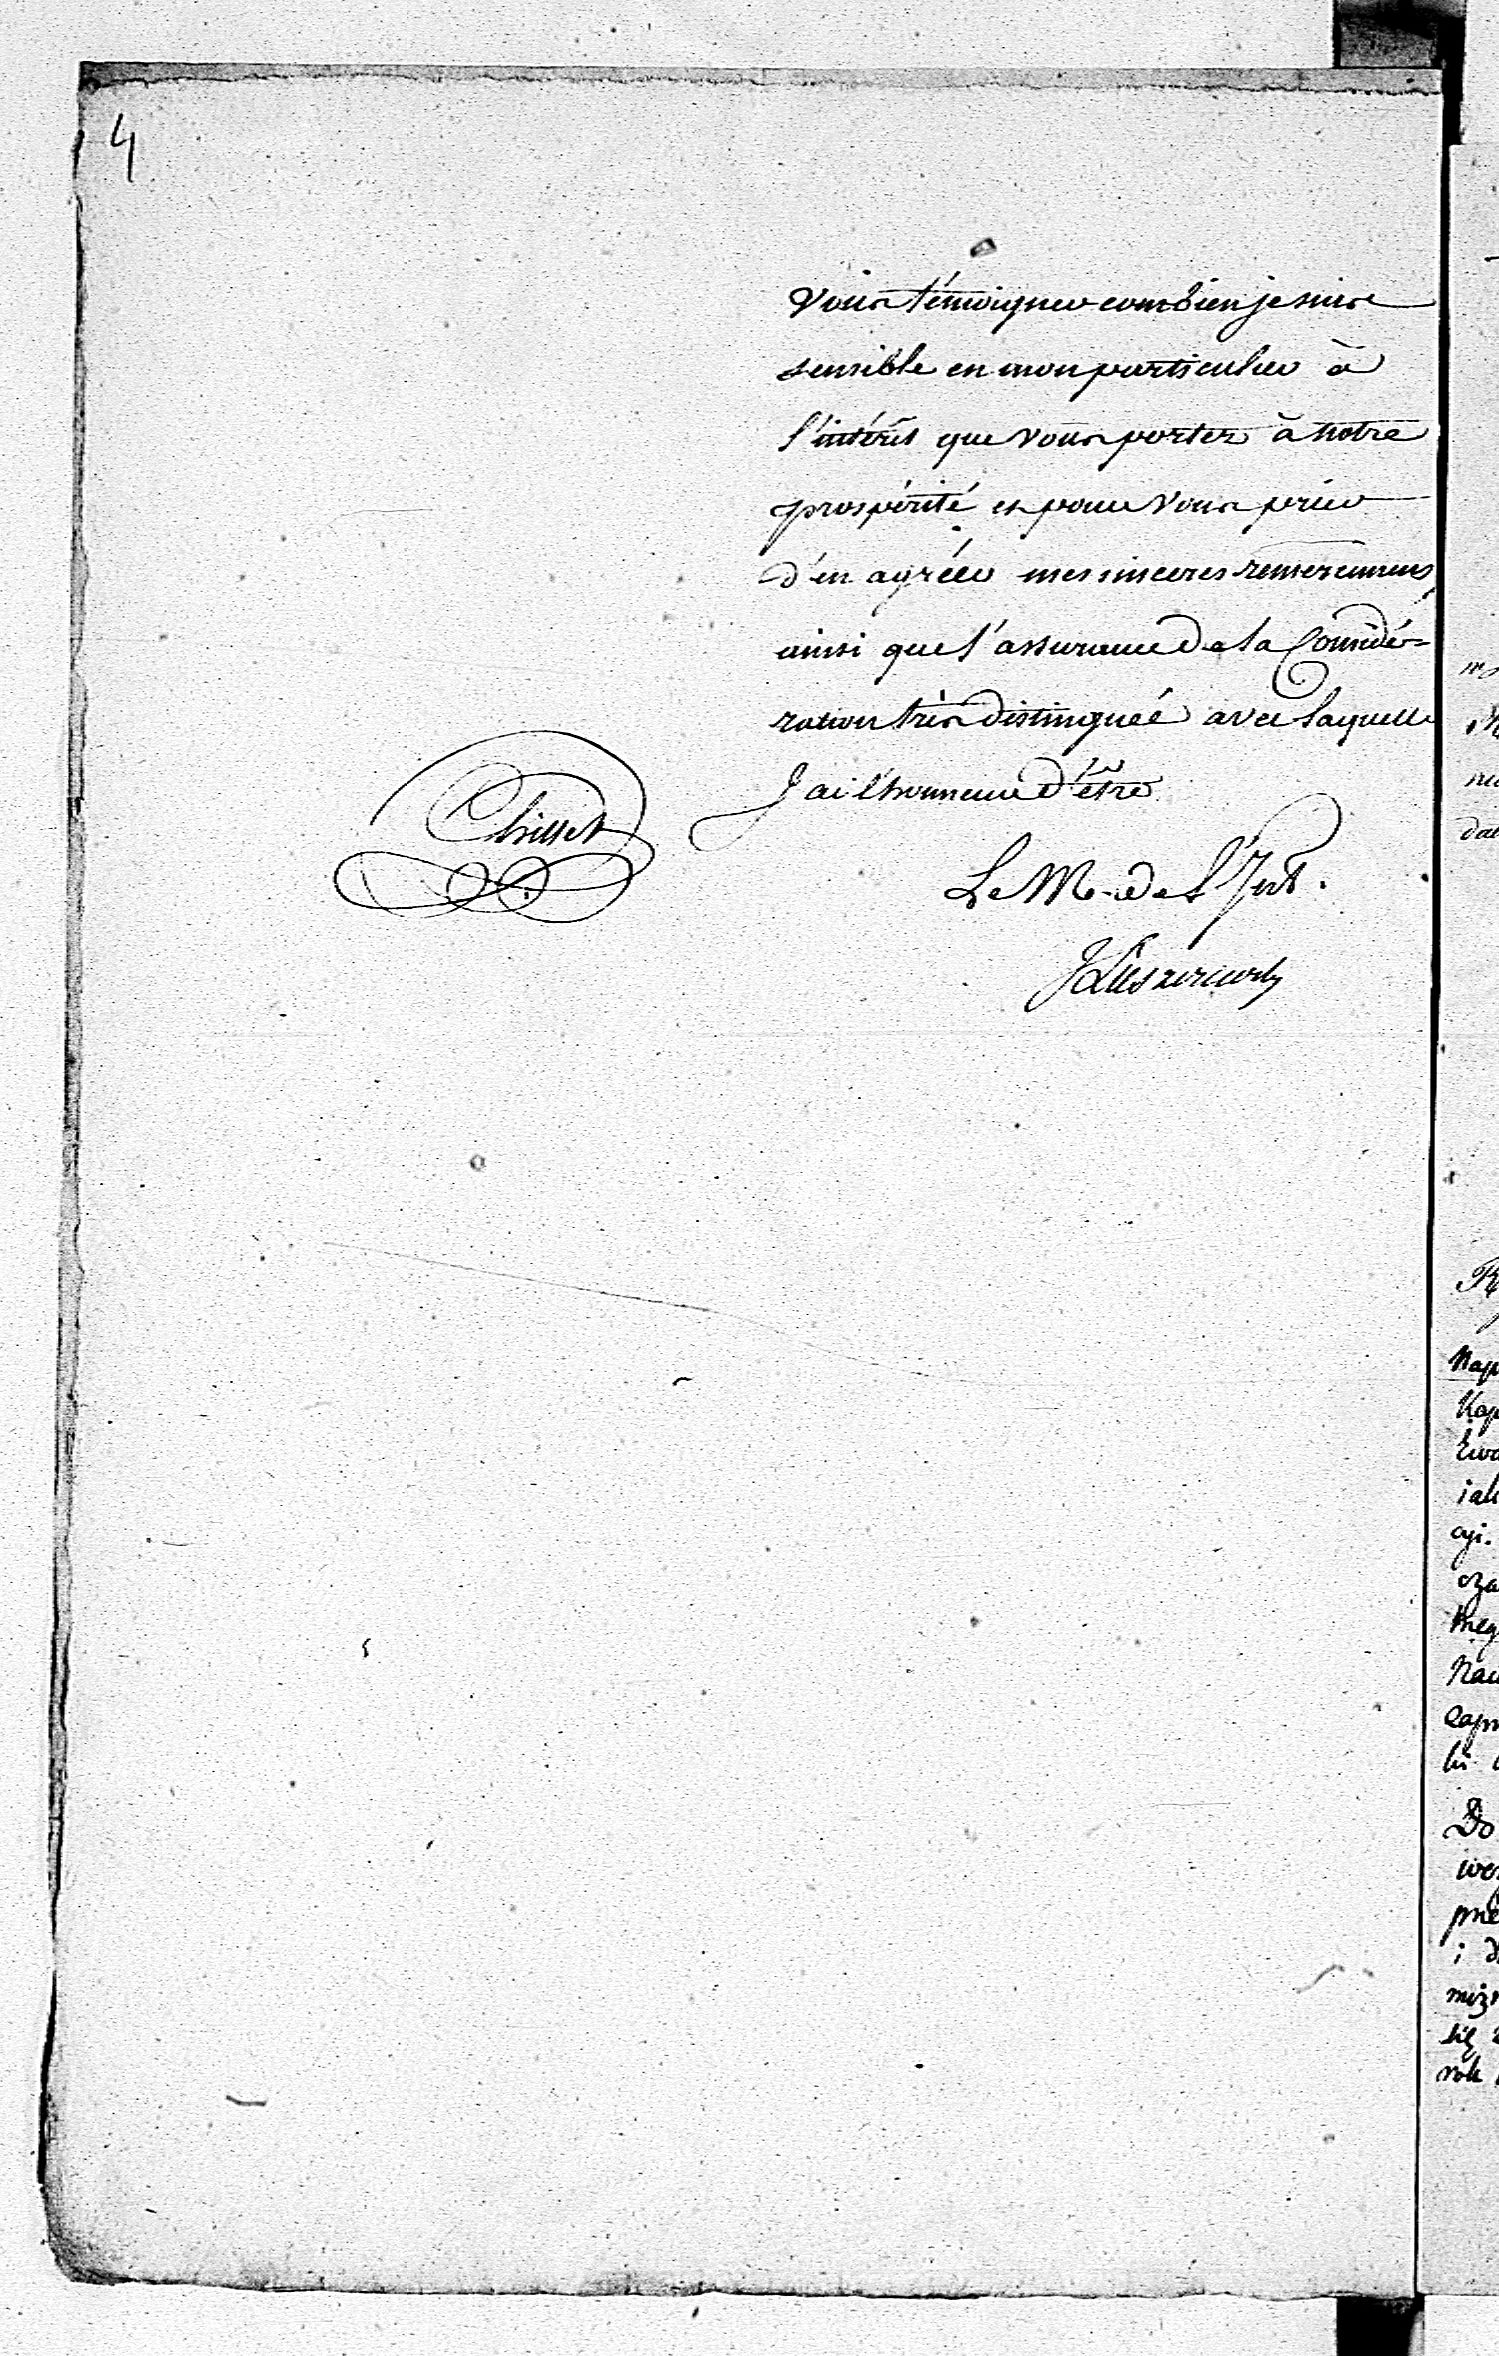 4
vous témoigner combien je suis
sensible en mon particulier à
l'intérêt que vous portez à notre
prospérité et pour vous prier
d'en agréer mes sinceres remercimens,
ainsi que l'assurance de la Considé-
ration très distinguée avec laquelle
J'ai l'honneur d'être
Le M. de l'Int.